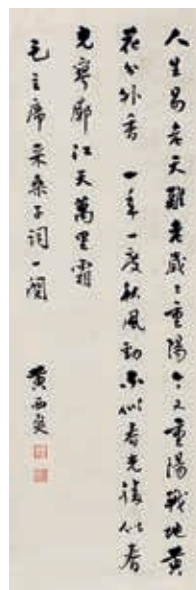 人生易老天難老歲々重陽今又重陽戰地黄
花分外香一年一度秋風勁不似春光勝似春
光寥廓江天萬里霜
毛主席采桑子詞一闋
黄西